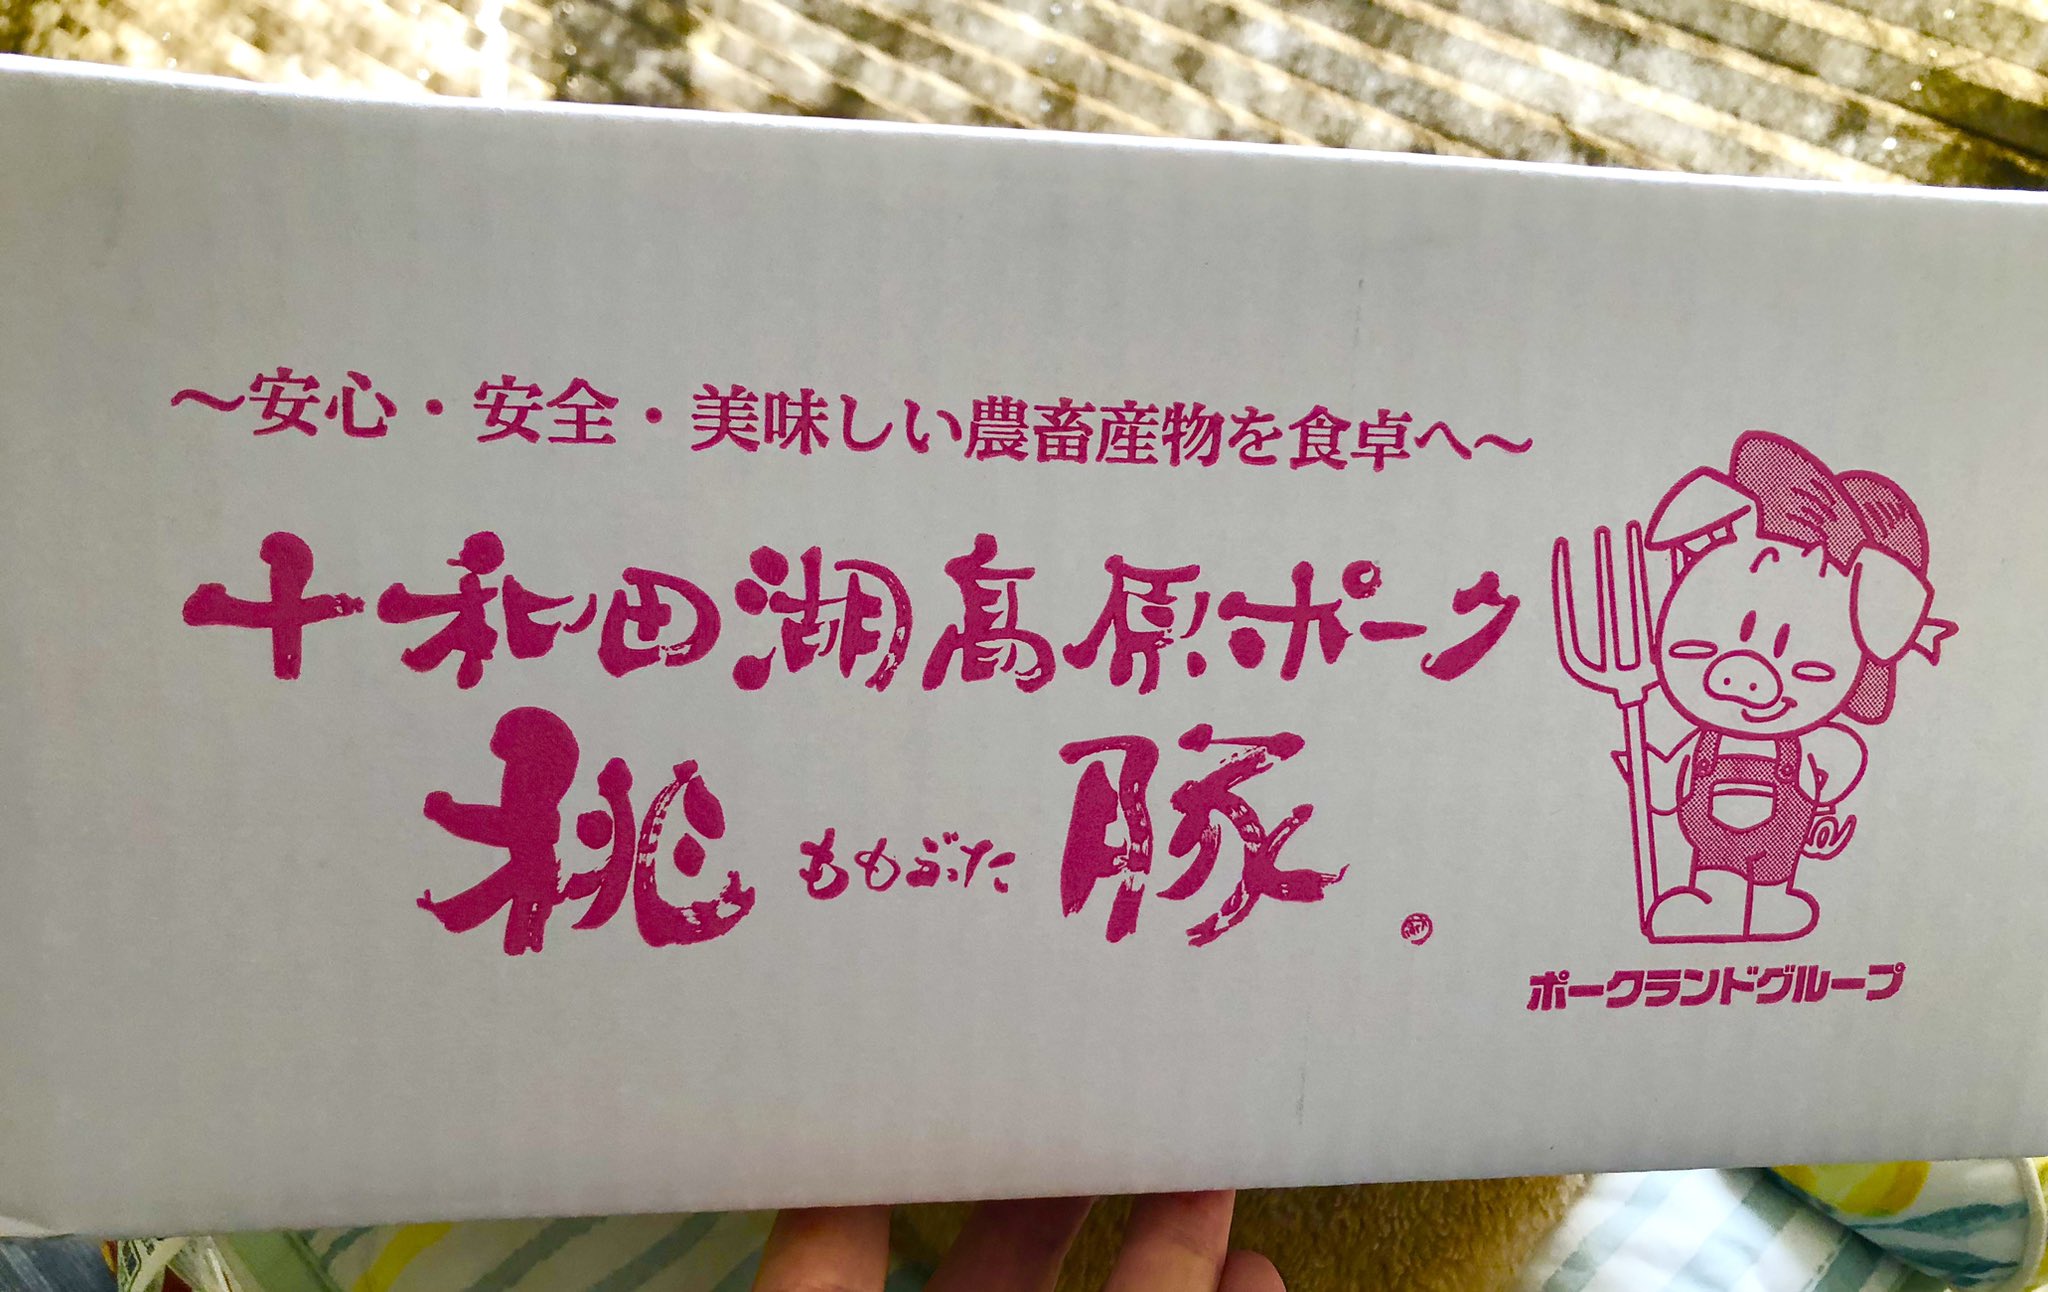 ～安心・安全・美味しい農畜産物を食卓へ～
十和田湖高原ポーク
桃ももぶた豚
ポークランドグループ